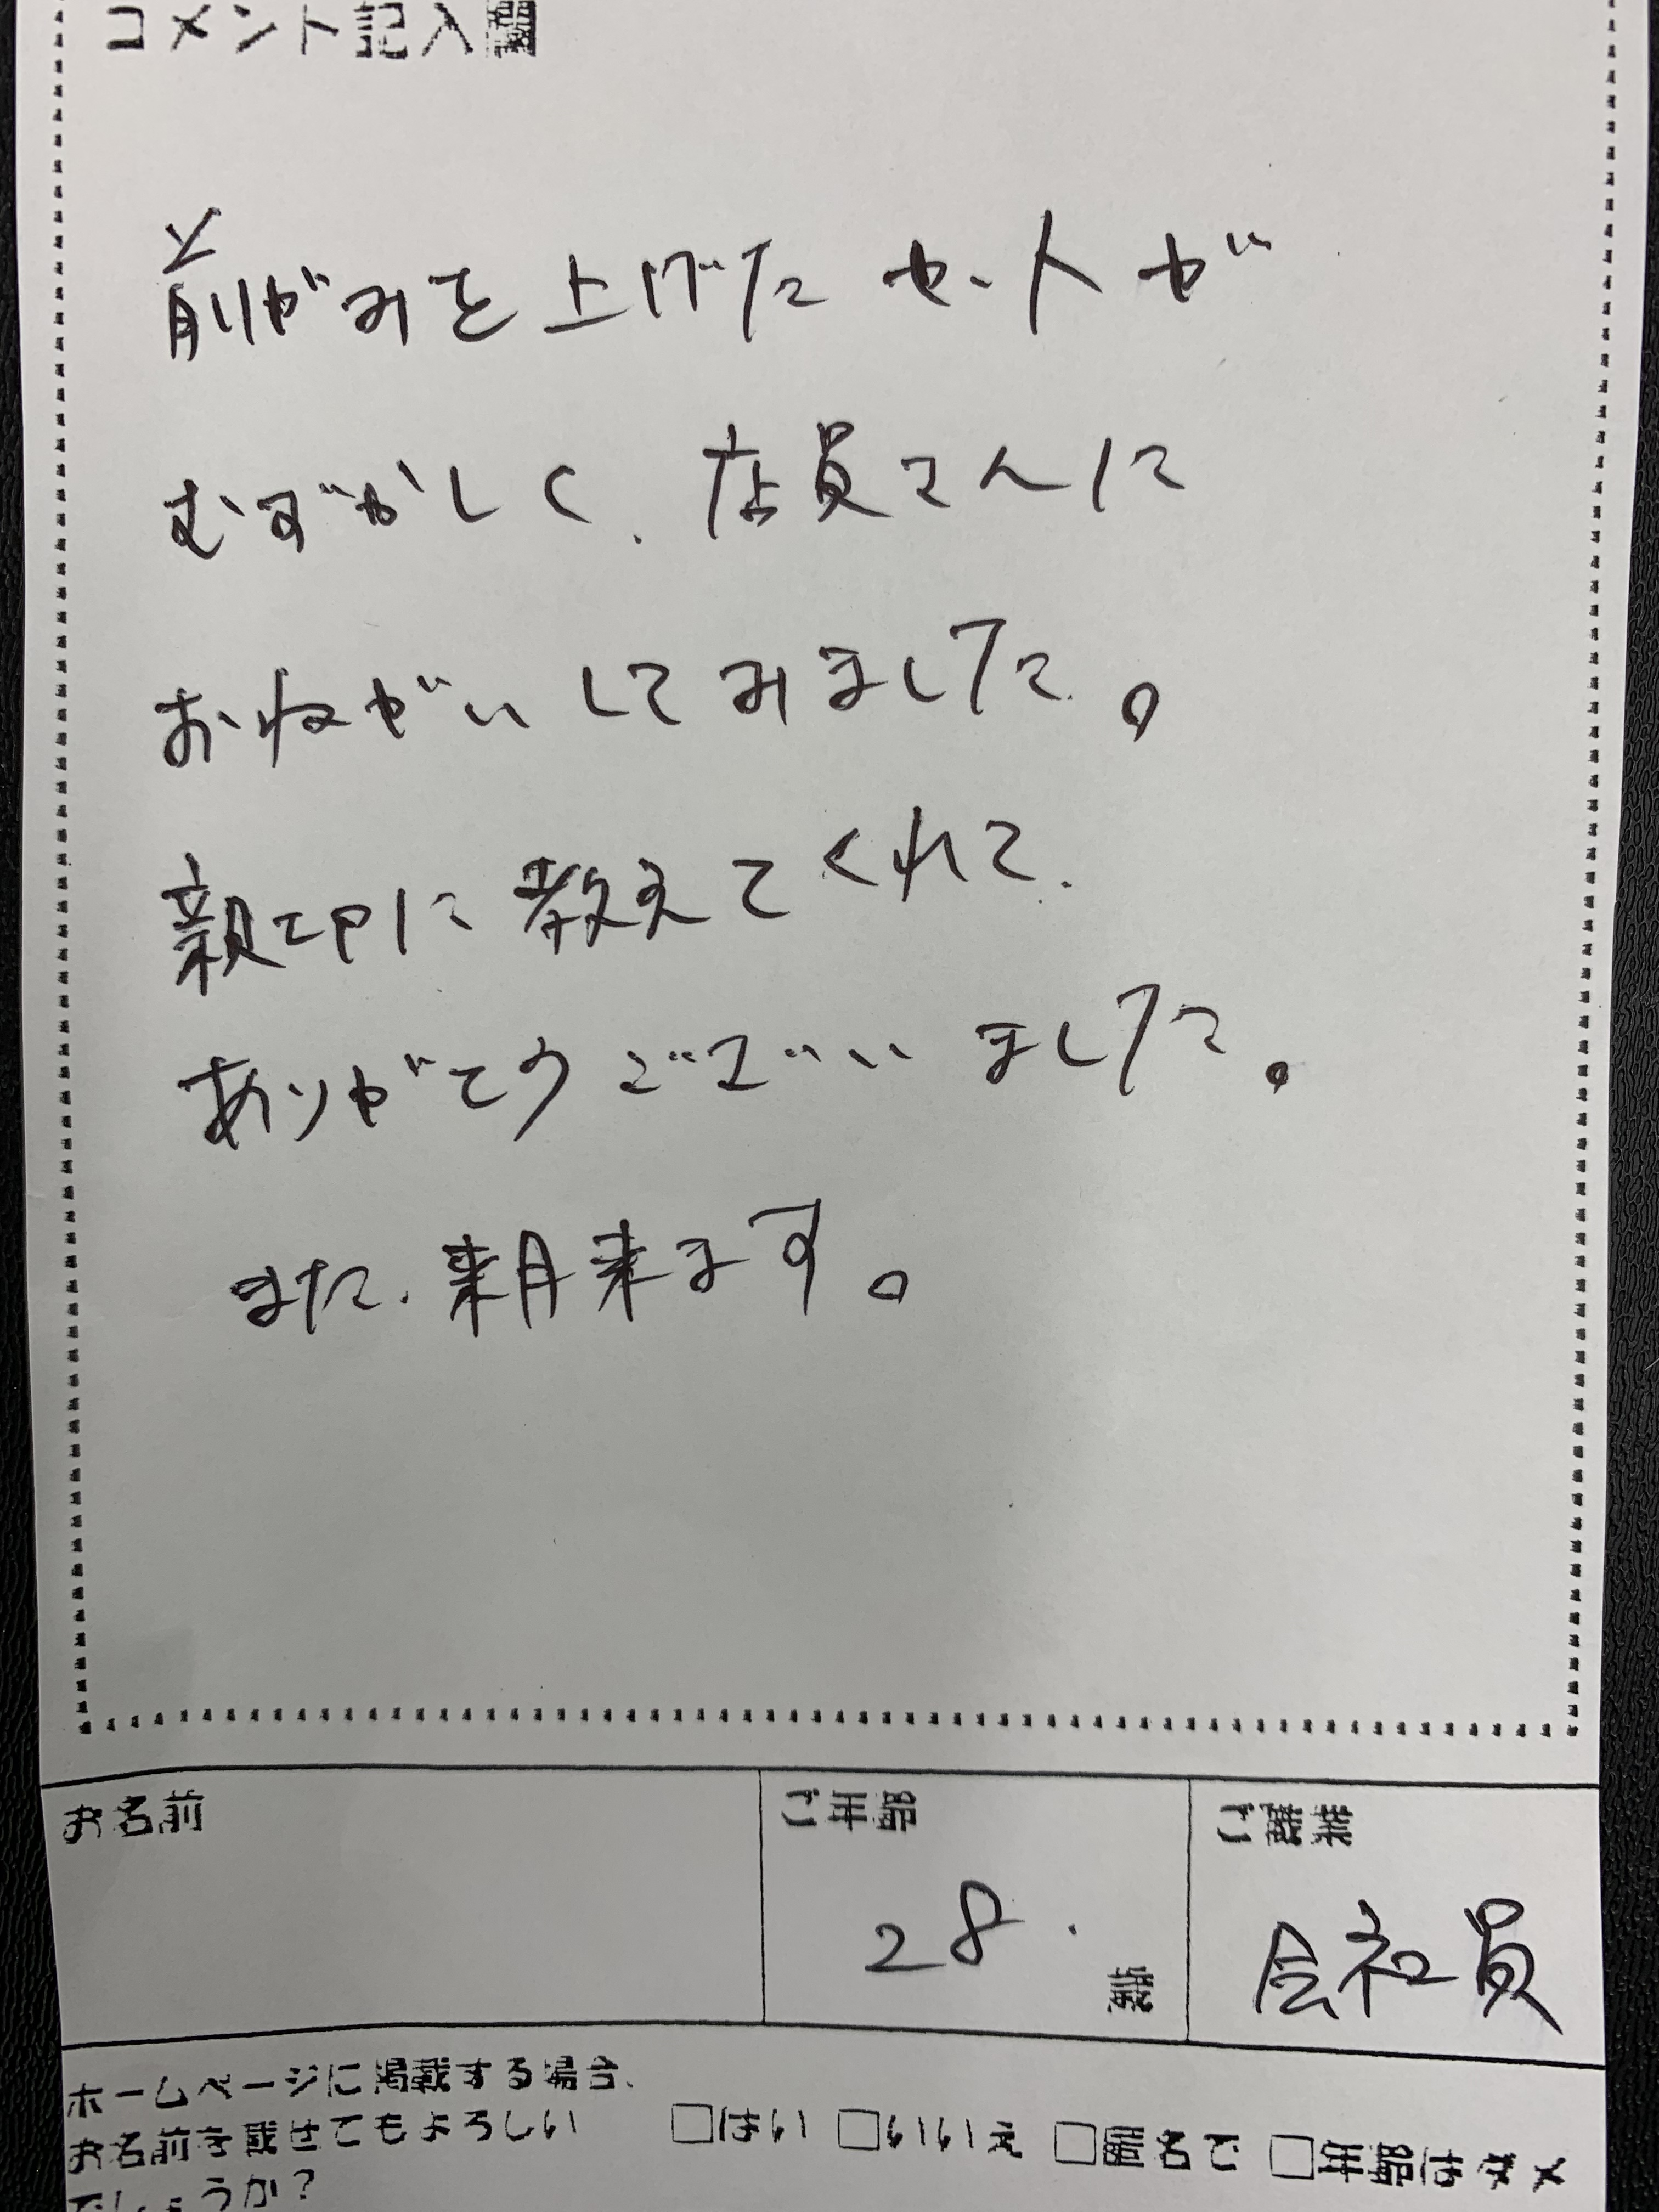 コメント記入欄
前がみを上げたセットが
むずかしく、店員さんに
おねがいしてみました。
親切に教えてくれて、
ありがとうございました。
また、来月来ます。
お名前
ご年齢
ご職業
28
歳
会社員
ホームページに掲載する場合、
お名前を載せてもよろしい
でしょうか?
□はい □いいえ □匿名で □年齢はダメ